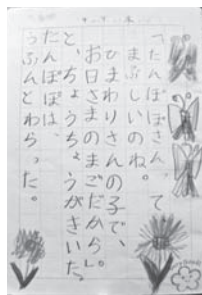 「たんぽぽさんて
まぶしいのね。
ひまわりさんの子で、
お日さまのまごだから。」
と、ちょうちょうがきいた。
たんぽぽは、
うふんとわらった。